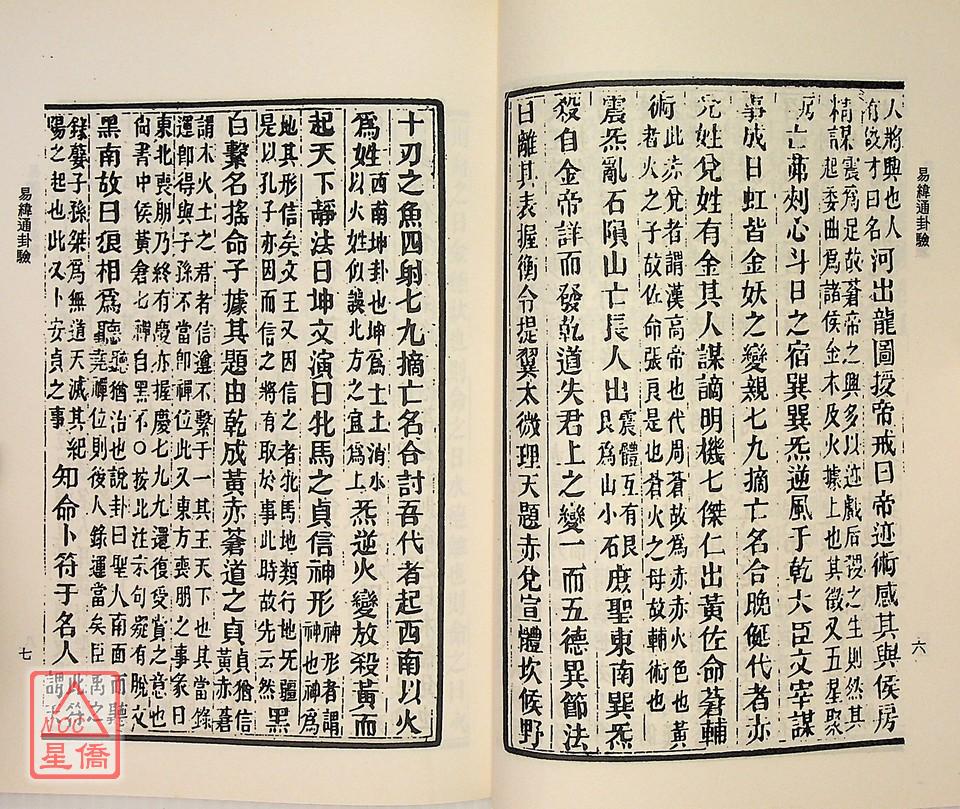 易緯通卦驗
六
人將興也人
有俊才曰名
河出龍圖授帝戒曰帝迹術感其與候房
精謀震爲足故蒼帝之興多以迹戲后稷之生則然其
起委曲爲諸侯金木及火據上也其徵又五星聚
房
亡弗刻心斗日之宿巽巽炁逆風于乾大臣文宰謀
事成日虹皆金妖之變親七九摘亡名合晚倕代者赤
兌姓兌姓有金其人謀謫明機七傑仁出黃佐命蒼輔
術
此赤兌者謂漢高帝也代周蒼故爲赤赤火色也黃
者火之子故佐命張良是也蒼火之母故輔術也
震炁亂石隕山亡長人出
震體互有艮
艮爲山小石
庶聖東南巽炁
殺自金帝詳而發乾道失君上之變一而五德異節法
日離其表握衡令提翼太微理天題赤兌宣體坎候野
易緯通卦驗
七
十刃之魚四射七九摘亡名合討吾代者起西南以火
爲姓
西南坤卦也坤爲土土消水
以火姓似誤北方之宜爲土
炁逆火變放殺黃而
起天下靜法曰坤文演曰牝馬之貞信神形
神形者謂
神也神爲
地其形信矣文王又因信之者牝馬地類行地无疆
是以孔子亦因而信之將有取於事此時故先云然
黑
白繫名搖命子據其題由乾成黃赤蒼道之貞
貞猶信
黃赤蒼
謂木火土之君者信謚不繫于一其王天下也其當錄
運卽得與子孫不當卽禪位此又東方喪朋之事彖曰
東北喪朋乃終有慶亦握慶七九九還復受貲之意也
尙書中侯黃倉七禪白黑不○按此注末句疑有脫文
黑南故曰狼相爲聽
聽猶治也說卦曰聖人南面而聽
堯禪位則後人錄運當矣臣禹之
錄孽子孫桀爲無道天滅其紀
陽之起也此又卜安貞之事
知命卜符于名人
此符
謂天
NOC
星僑